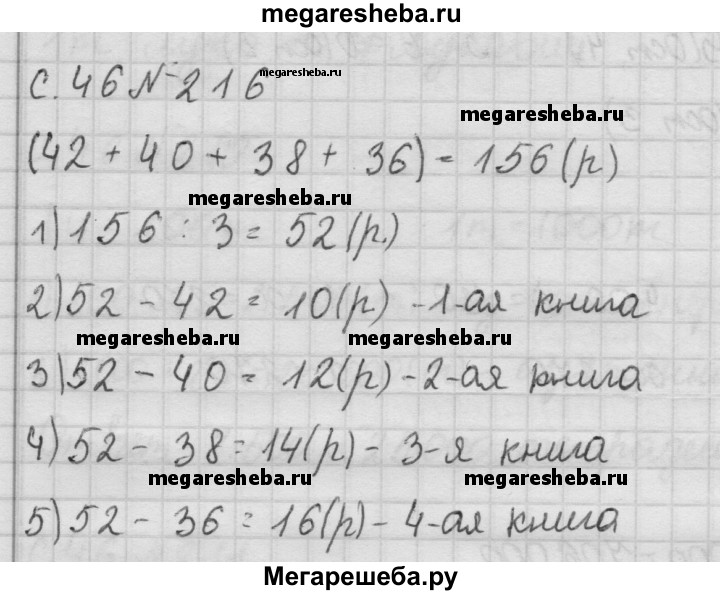 megaresheba.ru
с. 46 № 216
megaresheba.ru
megaresheba.ru
(42 + 40 + 38 + 36) = 156 (р)
megaresheba.ru
1) 156 : 3 = 52 (р.)
2) 52 - 42 = 10 (р) - 1-ая книга
megaresheba.ru megaresheba.ru
3) 52 - 40 = 12 (р) - 2-ая книга
4) 52 - 38 = 14 (р) - 3-я книга
megaresheba.ru megaresheba.ru
5) 52 - 36 = 16 (р) - 4-ая книга
Мегарешеба.ру